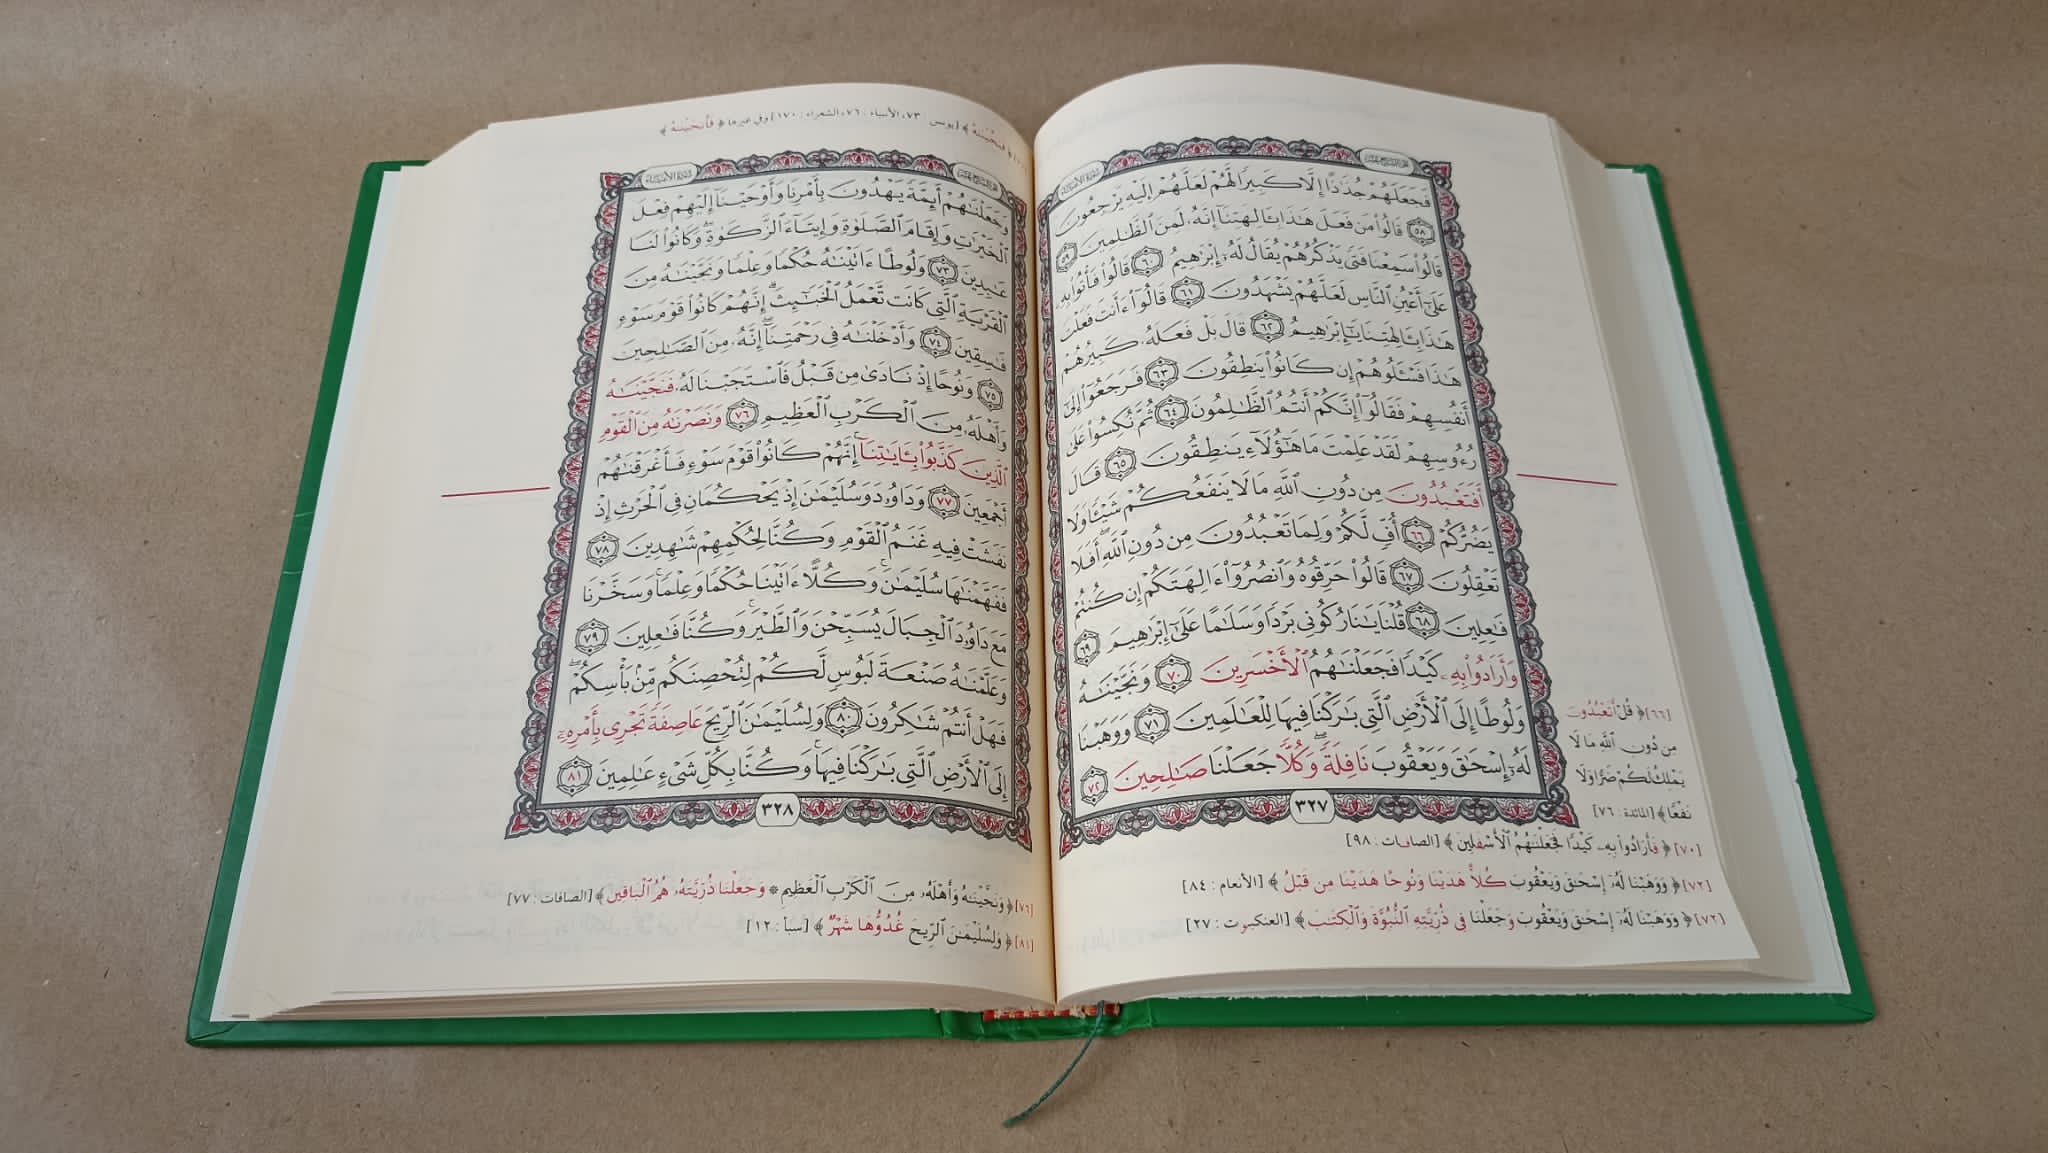 الجزء السابع عشر سورة الأنبياء
فَجَعَلَهُمْ جُذَٰذًا إِلَّا كَبِيرًا لَّهُمْ لَعَلَّهُمْ إِلَيْهِ يَرْجِعُونَ
٥٨ قَالُوا۟ مَن فَعَلَ هَٰذَا بِـَٔالِهَتِنَآ إِنَّهُۥ لَمِنَ ٱلظَّٰلِمِينَ ٥٩
قَالُوا۟ سَمِعْنَا فَتًى يَذْكُرُهُمْ يُقَالُ لَهُۥٓ إِبْرَٰهِيمُ ٦٠ قَالُوا۟ فَأْتُوا۟ بِهِۦ
عَلَىٰٓ أَعْيُنِ ٱلنَّاسِ لَعَلَّهُمْ يَشْهَدُونَ ٦١ قَالُوٓا۟ ءَأَنتَ فَعَلْتَ
هَٰذَا بِـَٔالِهَتِنَا يَٰٓإِبْرَٰهِيمُ ٦٢ قَالَ بَلْ فَعَلَهُۥ كَبِيرُهُمْ
هَٰذَا فَسْـَٔلُوهُمْ إِن كَانُوا۟ يَنطِقُونَ ٦٣ فَرَجَعُوٓا۟ إِلَىٰٓ
أَنفُسِهِمْ فَقَالُوٓا۟ إِنَّكُمْ أَنتُمُ ٱلظَّٰلِمُونَ ٦٤ ثُمَّ نُكِسُوا۟ عَلَىٰ
رُءُوسِهِمْ لَقَدْ عَلِمْتَ مَا هَٰٓؤُلَآءِ يَنطِقُونَ ٦٥ قَالَ
أَفَتَعْبُدُونَ مِن دُونِ ٱللَّهِ مَا لَا يَنفَعُكُمْ شَيْـًٔا وَلَا
يَضُرُّكُمْ ٦٦ أُفٍّ لَّكُمْ وَلِمَا تَعْبُدُونَ مِن دُونِ ٱللَّهِ ۖ أَفَلَا
تَعْقِلُونَ ٦٧ قَالُوا۟ حَرِّقُوهُ وَٱنصُرُوٓا۟ ءَالِهَتَكُمْ إِن كُنتُمْ
فَٰعِلِينَ ٦٨ قُلْنَا يَٰنَارُ كُونِى بَرْدًا وَسَلَٰمًا عَلَىٰٓ إِبْرَٰهِيمَ ٦٩
وَأَرَادُوا۟ بِهِۦ كَيْدًا فَجَعَلْنَٰهُمُ ٱلْأَخْسَرِينَ ٧٠ وَنَجَّيْنَٰهُ
وَلُوطًا إِلَى ٱلْأَرْضِ ٱلَّتِى بَٰرَكْنَا فِيهَا لِلْعَٰلَمِينَ ٧١ وَوَهَبْنَا
لَهُۥٓ إِسْحَٰقَ وَيَعْقُوبَ نَافِلَةً ۖ وَكُلًّا جَعَلْنَا صَٰلِحِينَ ٧٢
٣٢٧
[٦٦] ﴿ قُلْ أَتَعْبُدُونَ
مِن دُونِ ٱللَّهِ مَا لَا
يَمْلِكُ لَكُمْ ضَرًّا وَلَا
نَفْعًا ﴾ [المائدة : ٧٦]
[٧٠] ﴿ فَأَرَادُوا۟ بِهِۦ كَيْدًا فَجَعَلْنَٰهُمُ ٱلْأَسْفَلِينَ ﴾ [الصافات : ٩٨]
[٧٢] ﴿ وَوَهَبْنَا لَهُۥٓ إِسْحَٰقَ وَيَعْقُوبَ كُلًّا هَدَيْنَا وَنُوحًا هَدَيْنَا مِن قَبْلُ ﴾ [الأنعام : ٨٤]
[٧٢] ﴿ وَوَهَبْنَا لَهُۥٓ إِسْحَٰقَ وَيَعْقُوبَ وَجَعَلْنَا فِى ذُرِّيَّتِهِ ٱلنُّبُوَّةَ وَٱلْكِتَٰبَ ﴾ [العنكبوت : ٢٧]
﴿ فَنَجَّيْنَٰهُ ﴾ [يونس ٧٣، الأنبياء : ٧٦، الشعراء : ١٧٠] وفي غيرها ﴿ فَأَنجَيْنَٰهُ ﴾
الجزء السابع عشر سورة الأنبياء
وَجَعَلْنَٰهُمْ أَئِمَّةً يَهْدُونَ بِأَمْرِنَا وَأَوْحَيْنَآ إِلَيْهِمْ فِعْلَ
ٱلْخَيْرَٰتِ وَإِقَامَ ٱلصَّلَوٰةِ وَإِيتَآءَ ٱلزَّكَوٰةِ ۖ وَكَانُوا۟ لَنَا
عَٰبِدِينَ ٧٣ وَلُوطًا ءَاتَيْنَٰهُ حُكْمًا وَعِلْمًا وَنَجَّيْنَٰهُ مِنَ
ٱلْقَرْيَةِ ٱلَّتِى كَانَت تَّعْمَلُ ٱلْخَبَٰٓئِثَ ۗ إِنَّهُمْ كَانُوا۟ قَوْمَ سَوْءٍ
فَٰسِقِينَ ٧٤ وَأَدْخَلْنَٰهُ فِى رَحْمَتِنَآ ۖ إِنَّهُۥ مِنَ ٱلصَّٰلِحِينَ
٧٥ وَنُوحًا إِذْ نَادَىٰ مِن قَبْلُ فَٱسْتَجَبْنَا لَهُۥ فَنَجَّيْنَٰهُ
وَأَهْلَهُۥ مِنَ ٱلْكَرْبِ ٱلْعَظِيمِ ٧٦ وَنَصَرْنَٰهُ مِنَ ٱلْقَوْمِ
ٱلَّذِينَ كَذَّبُوا۟ بِـَٔايَٰتِنَآ ۚ إِنَّهُمْ كَانُوا۟ قَوْمَ سَوْءٍ فَأَغْرَقْنَٰهُمْ
أَجْمَعِينَ ٧٧ وَدَاوُۥدَ وَسُلَيْمَٰنَ إِذْ يَحْكُمَانِ فِى ٱلْحَرْثِ إِذْ
نَفَشَتْ فِيهِ غَنَمُ ٱلْقَوْمِ وَكُنَّا لِحُكْمِهِمْ شَٰهِدِينَ ٧٨
فَفَهَّمْنَٰهَا سُلَيْمَٰنَ ۚ وَكُلًّا ءَاتَيْنَا حُكْمًا وَعِلْمًا ۚ وَسَخَّرْنَا
مَعَ دَاوُۥدَ ٱلْجِبَالَ يُسَبِّحْنَ وَٱلطَّيْرَ ۚ وَكُنَّا فَٰعِلِينَ ٧٩
وَعَلَّمْنَٰهُ صَنْعَةَ لَبُوسٍ لَّكُمْ لِتُحْصِنَكُم مِّنۢ بَأْسِكُمْ ۖ
فَهَلْ أَنتُمْ شَٰكِرُونَ ٨٠ وَلِسُلَيْمَٰنَ ٱلرِّيحَ عَاصِفَةً تَجْرِى بِأَمْرِهِۦٓ
إِلَى ٱلْأَرْضِ ٱلَّتِى بَٰرَكْنَا فِيهَا ۚ وَكُنَّا بِكُلِّ شَىْءٍ عَٰلِمِينَ ٨١
٣٢٨
[٧٦] ﴿ وَنَجَّيْنَٰهُ وَأَهْلَهُۥ مِنَ ٱلْكَرْبِ ٱلْعَظِيمِ * وَجَعَلْنَا ذُرِّيَّتَهُۥ هُمُ ٱلْبَاقِينَ ﴾ [الصافات : ٧٧]
[٨١] ﴿ وَلِسُلَيْمَٰنَ ٱلرِّيحَ غُدُوُّهَا شَهْرٌ ﴾ [سبأ : ١٢]